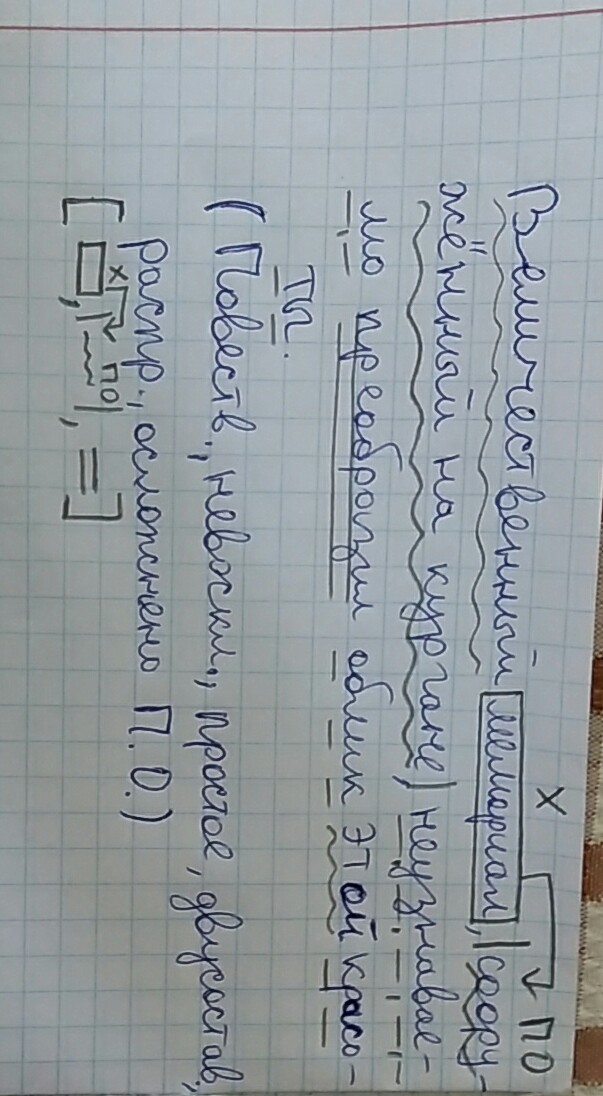 х ПО
Величественный мемориал, |соору-
жённый на кургане,| неузнавае-
мо преобразил облик этой красо-
ты.
(Повеств., невоскл., простое, двусостав,
распр., осложнено П.О.)
х ПО
[▭,|~|, =]